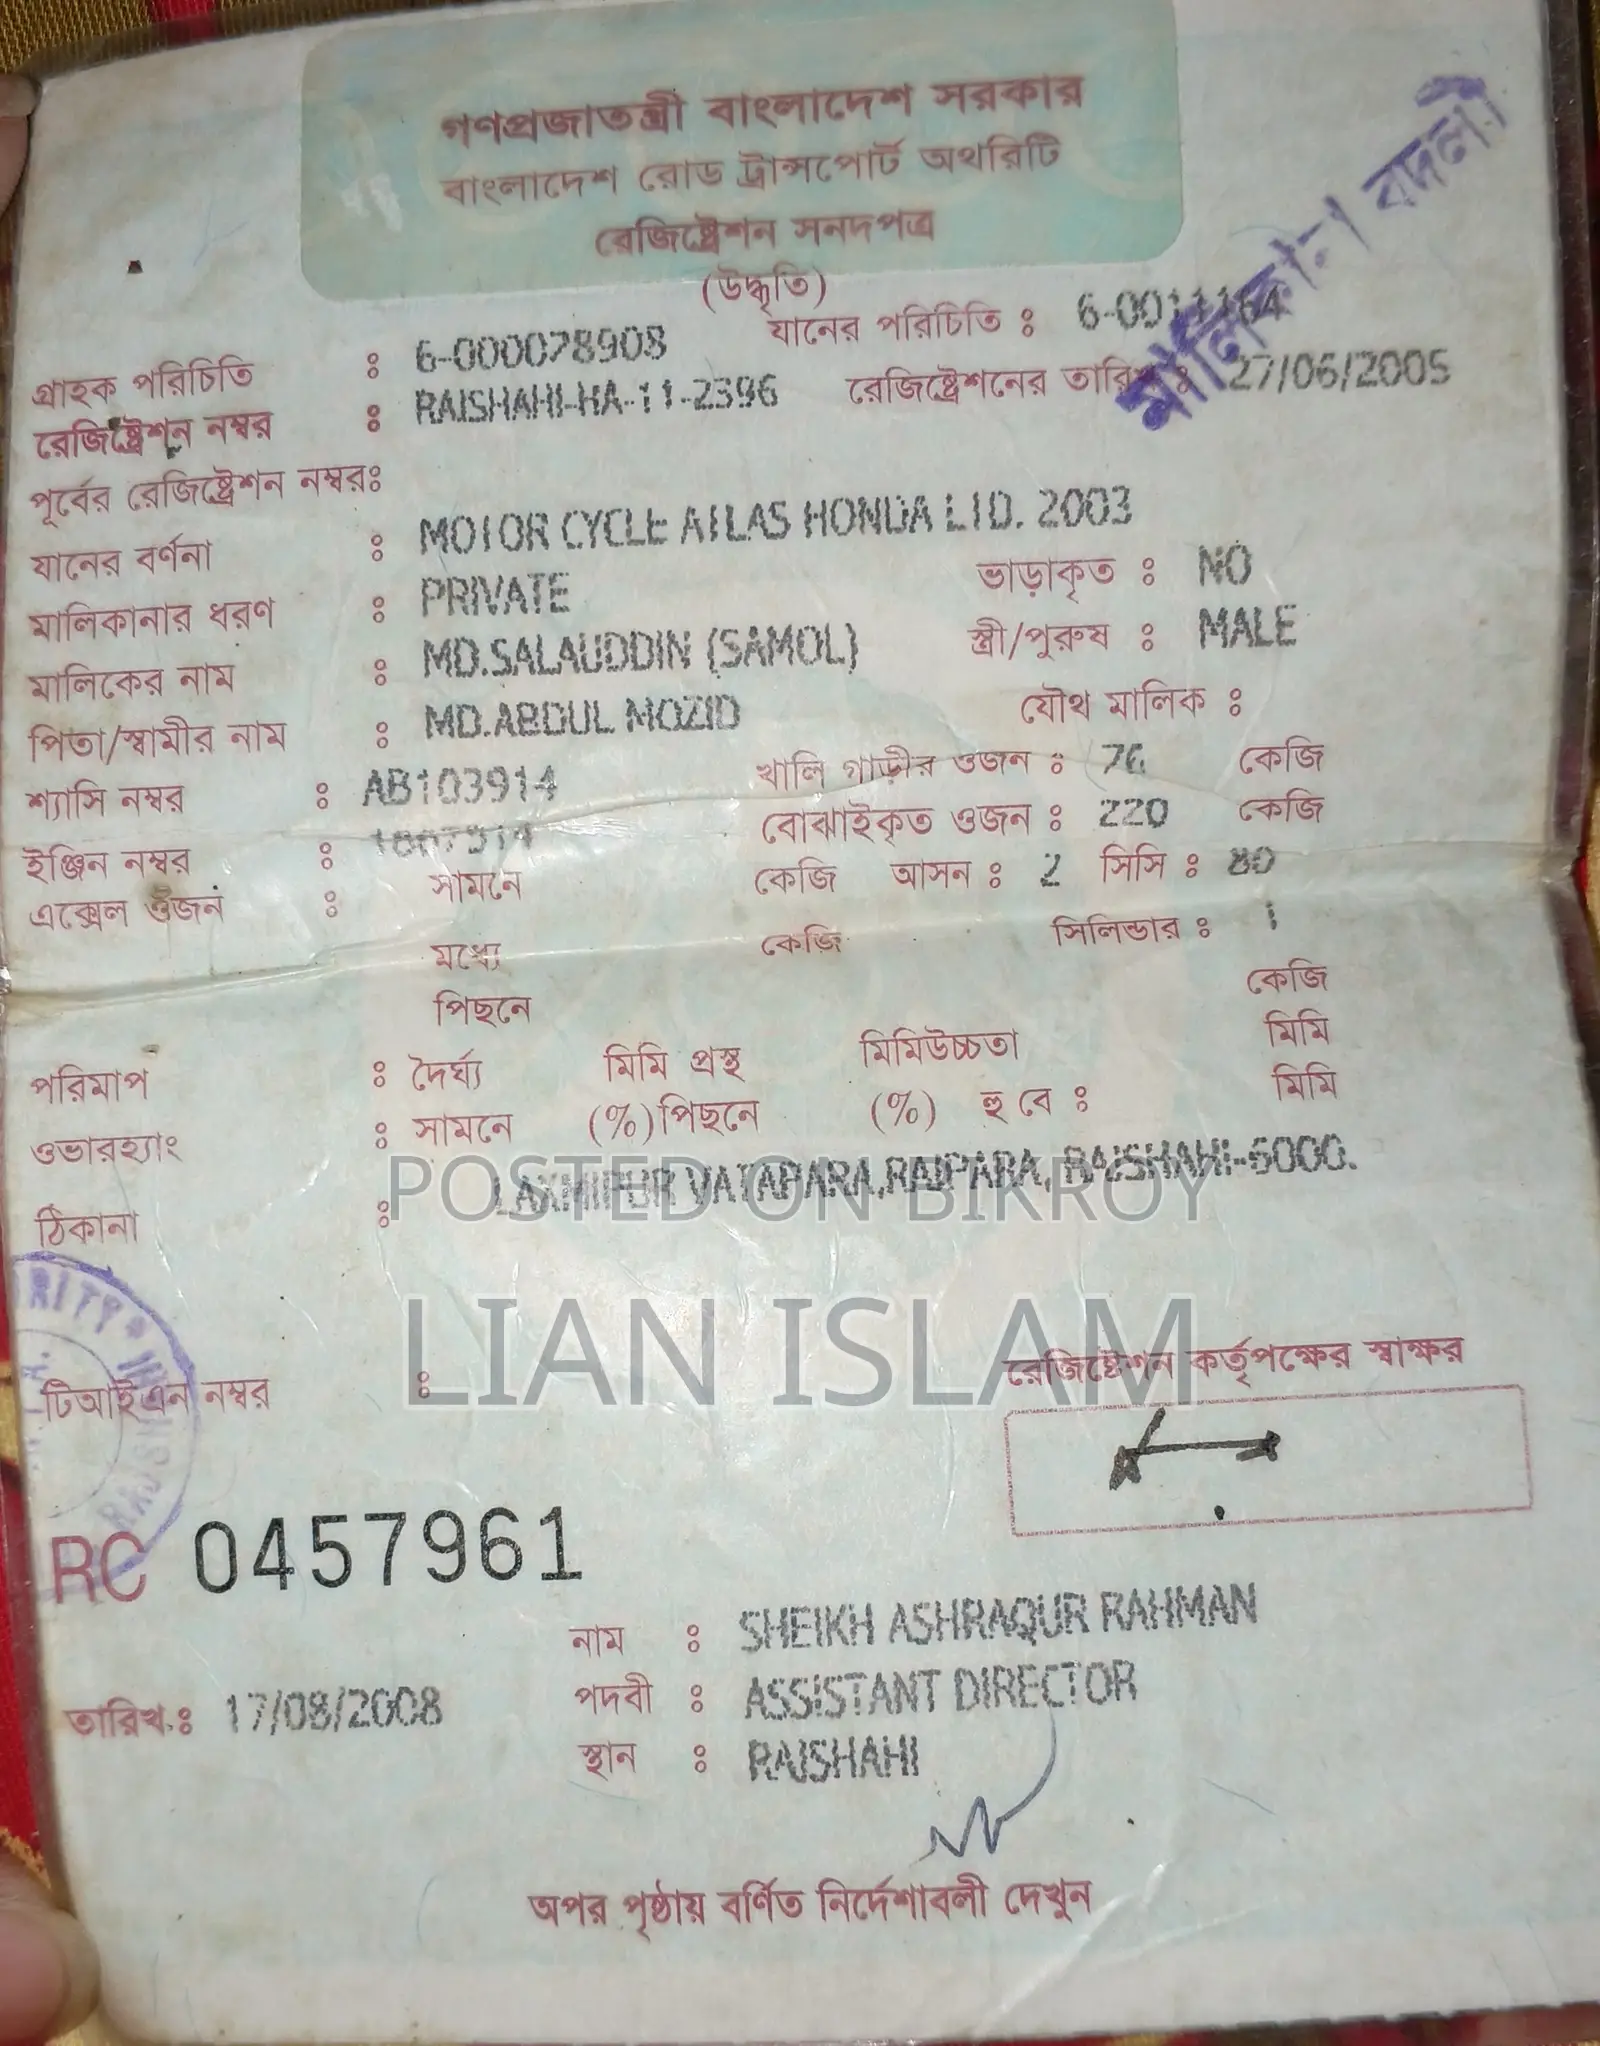 গণপ্রজাতন্ত্রী বাংলাদেশ সরকার
বাংলাদেশ রোড ট্রান্সপোর্ট অথরিটি
রেজিষ্ট্রেশন সনদপত্র
(উদ্ধৃতি)
মালিকানা বদলী
গ্রাহক পরিচিতি : 6-000078908 যানের পরিচিতি : 6-0011164
রেজিষ্ট্রেশন নম্বর : RAJSHAHI-HA-11-2396 রেজিষ্ট্রেশনের তারিখ : 27/06/2005
পূর্বের রেজিষ্ট্রেশন নম্বর:
যানের বর্ণনা : MOTOR CYCLE ATLAS HONDA LTD. 2003
মালিকানার ধরণ : PRIVATE ভাড়াকৃত : NO
মালিকের নাম : MD.SALAUDDIN (SAMOL) স্ত্রী/পুরুষ : MALE
পিতা/স্বামীর নাম : MD.ABDUL MOZID যৌথ মালিক :
শ্যাসি নম্বর : AB103914 খালি গাড়ীর ওজন : 76 কেজি
ইঞ্জিন নম্বর : বোঝাইকৃত ওজন : 220 কেজি
এক্সেল ওজন : সামনে কেজি আসন : 2 সিসি : 80
মধ্যে কেজি সিলিন্ডার : 1
পিছনে কেজি
পরিমাপ : দৈর্ঘ্য মিমি প্রস্থ মিমিউচ্চতা মিমি
ওভারহ্যাং : সামনে (%) পিছনে (%) হু বে : মিমি
ঠিকানা : LAXMIPUR VATAPARA,RAJPARA, RAJSHAHI-6000.
POSTED ON BIKROY
LIAN ISLAM
টিআইএন নম্বর :
রেজিষ্ট্রেশন কর্তৃপক্ষের স্বাক্ষর
RC 0457961
নাম : SHEIKH ASHRAQUR RAHMAN
তারিখ : 17/08/2008 পদবী : ASSISTANT DIRECTOR
স্থান : RAJSHAHI
অপর পৃষ্ঠায় বর্ণিত নির্দেশাবলী দেখুন